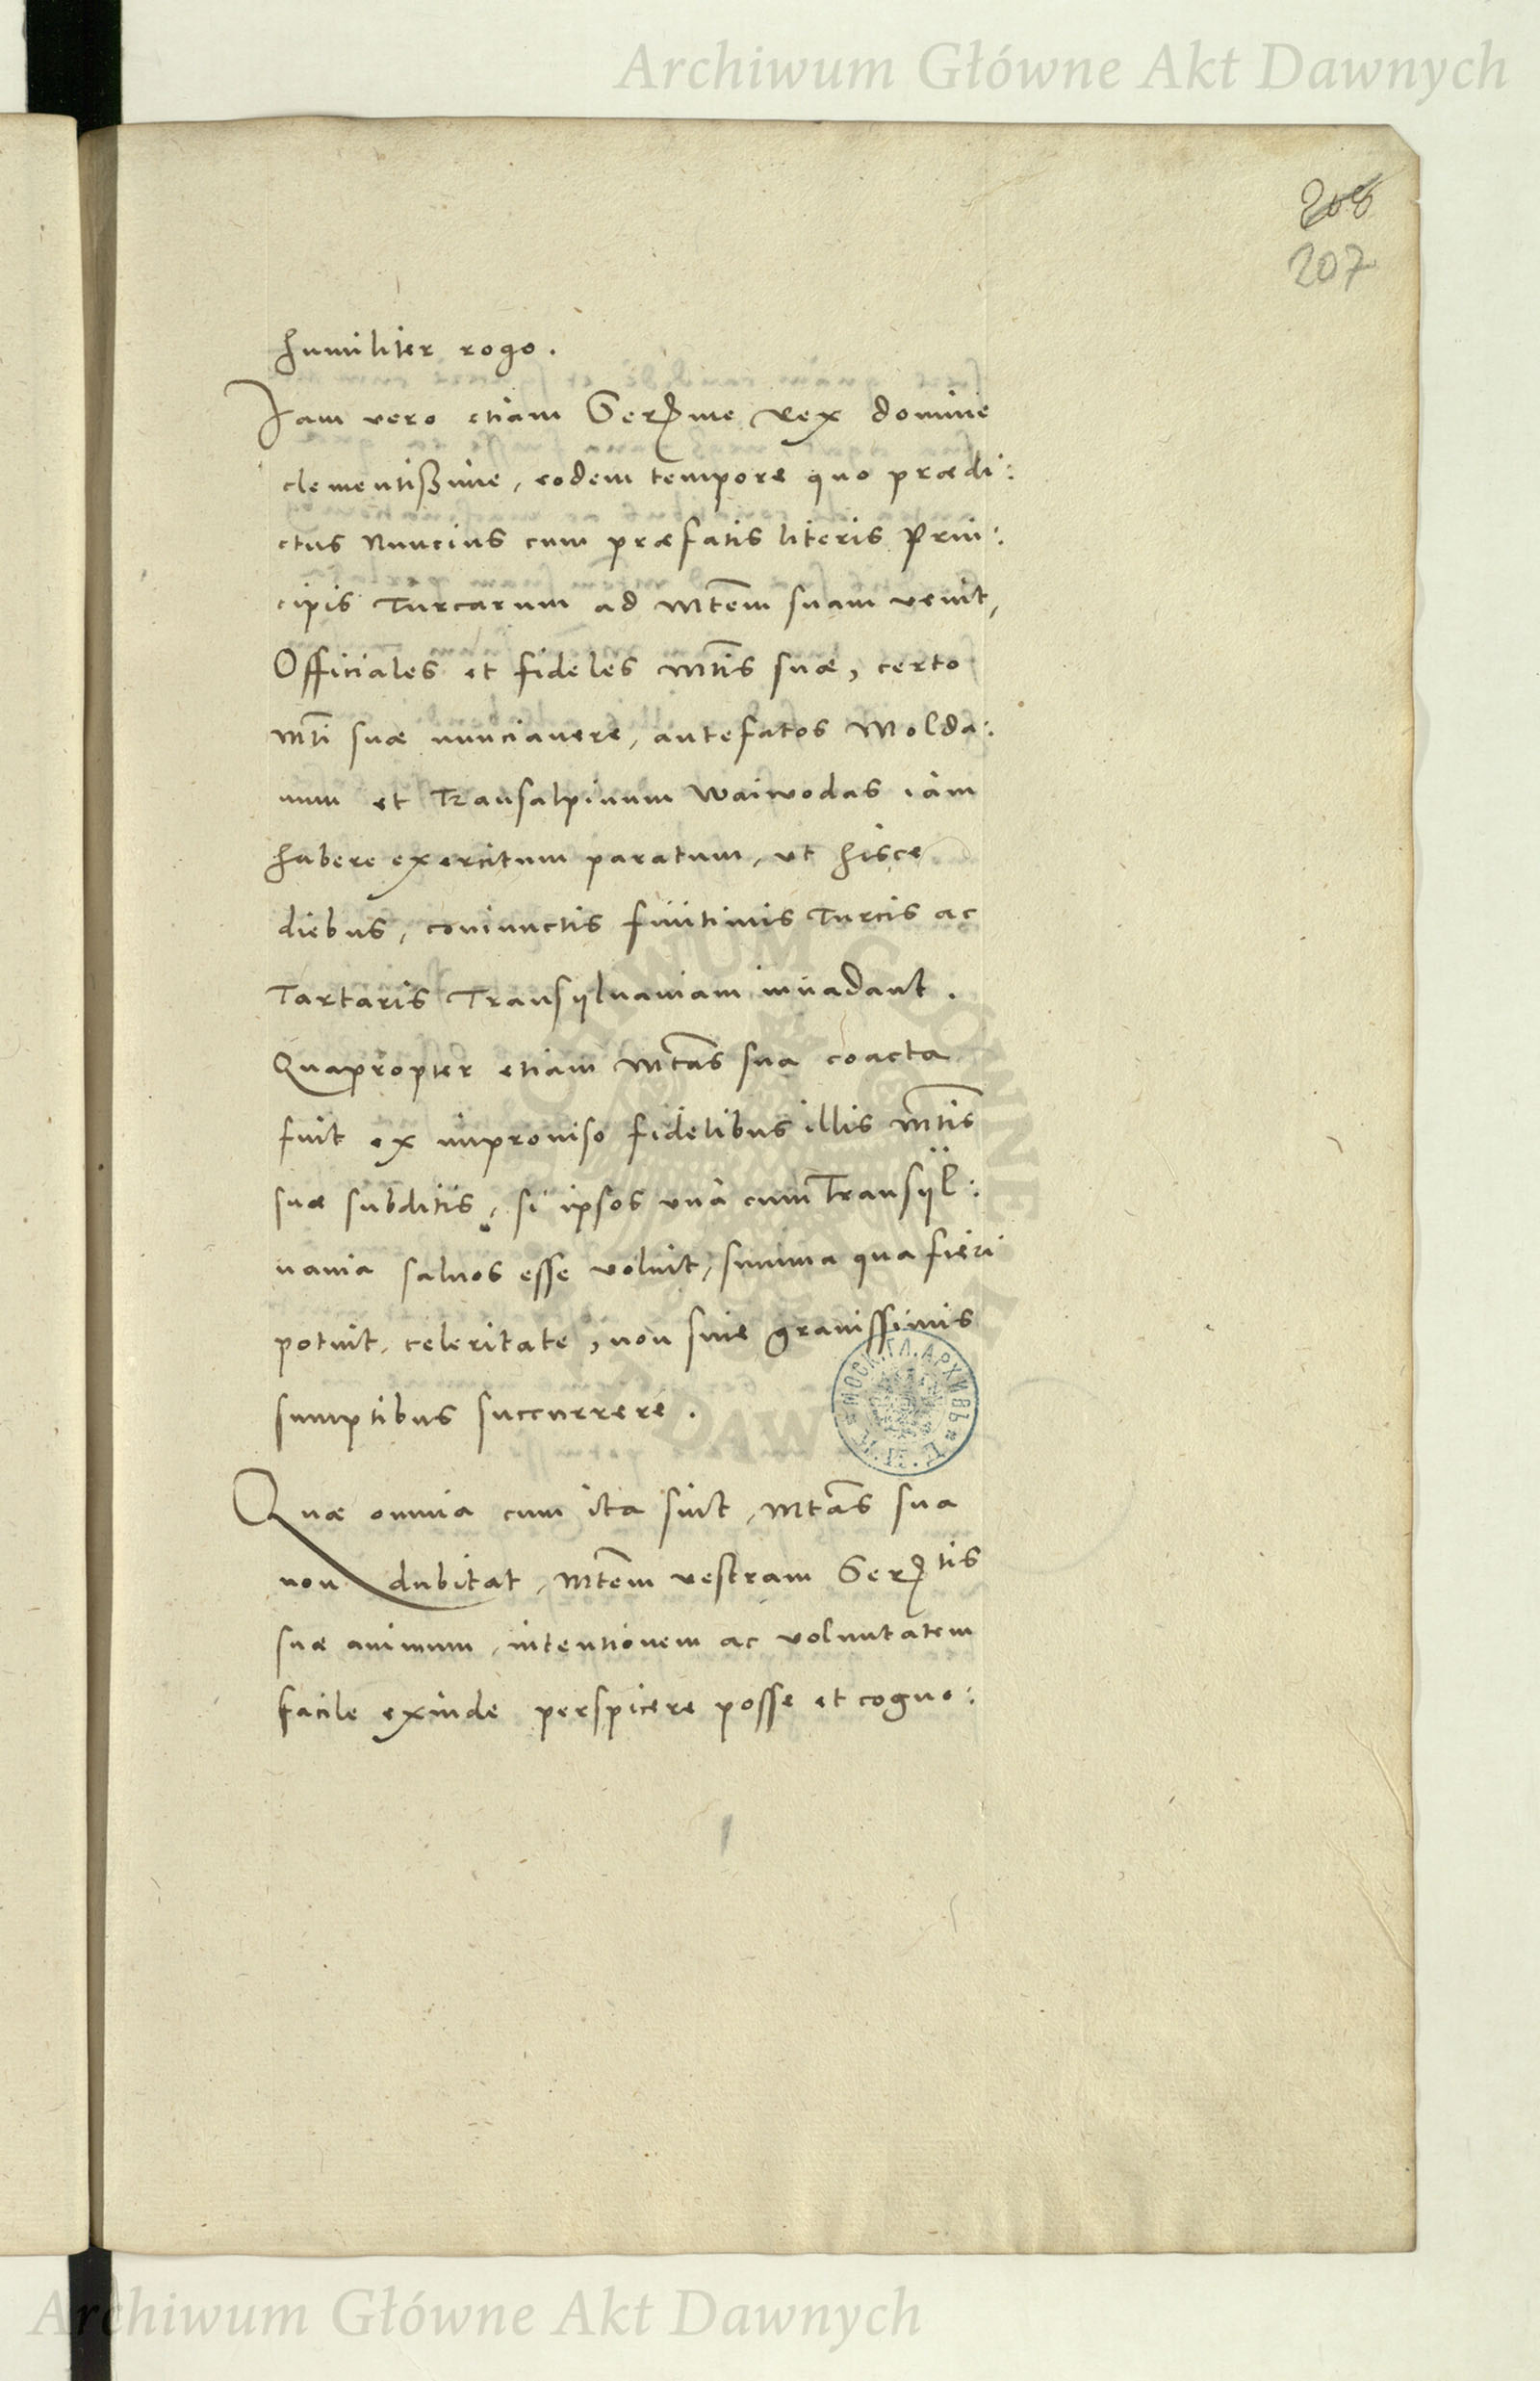 Archiwum Główne Akt Dawnych
208
207
humiliter rogo.
Iam vero etiam Serme Rex domine
clementißime, eodem tempore quo prædi:
ctus Nuncius cum præfatis literis Prin:
cipis Turcarum ad Mtem suam venit,
Officiales et fideles Mtis suæ, certo
Mti suæ nunciavere, antefatos Molda:
uum et Transalpinum Waiwodas iam
habere exercitum paratum, ut hisce
diebus, coniunctis finitimis Turcis ac
Tartaris Transÿluaniam inuadant.
Quapropter etiam Mtas sua coacta
fuit ex improuiso fidelibus illis Mtis
suæ subditis, si ipsos unà cum Transÿl:
uania saluos esse voluit, summa qua fieri
potuit, celeritate, non sine grauissimis
sumptibus succurrere.
Quæ omnia cum ita sint, Mtas sua
non dubitat, Mtem vestram Sertis
suæ animum, intentionem ac voluntatem
facile exinde perspicere posse et cogno:
Archiwum Główne Akt Dawnych